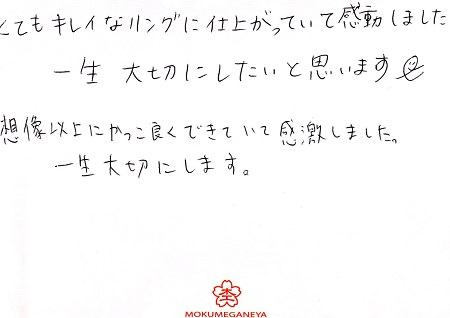 とてもキレイなリングに仕上がっていて感動しました
一生 大切にしたいと思います
想像以上にかっこ良くできていて感激しました。
一生大切にします。
杢
MOKUMEGANEYA